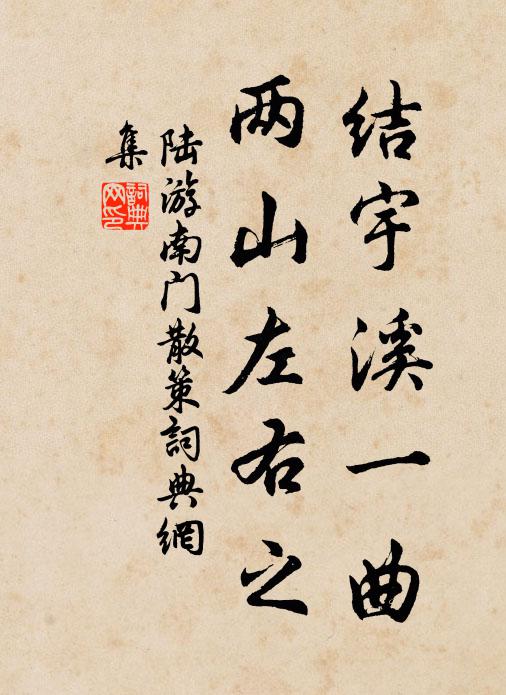 结宇溪一曲
两山左右之
陆游南门散策詞典網
集
詞典
网印